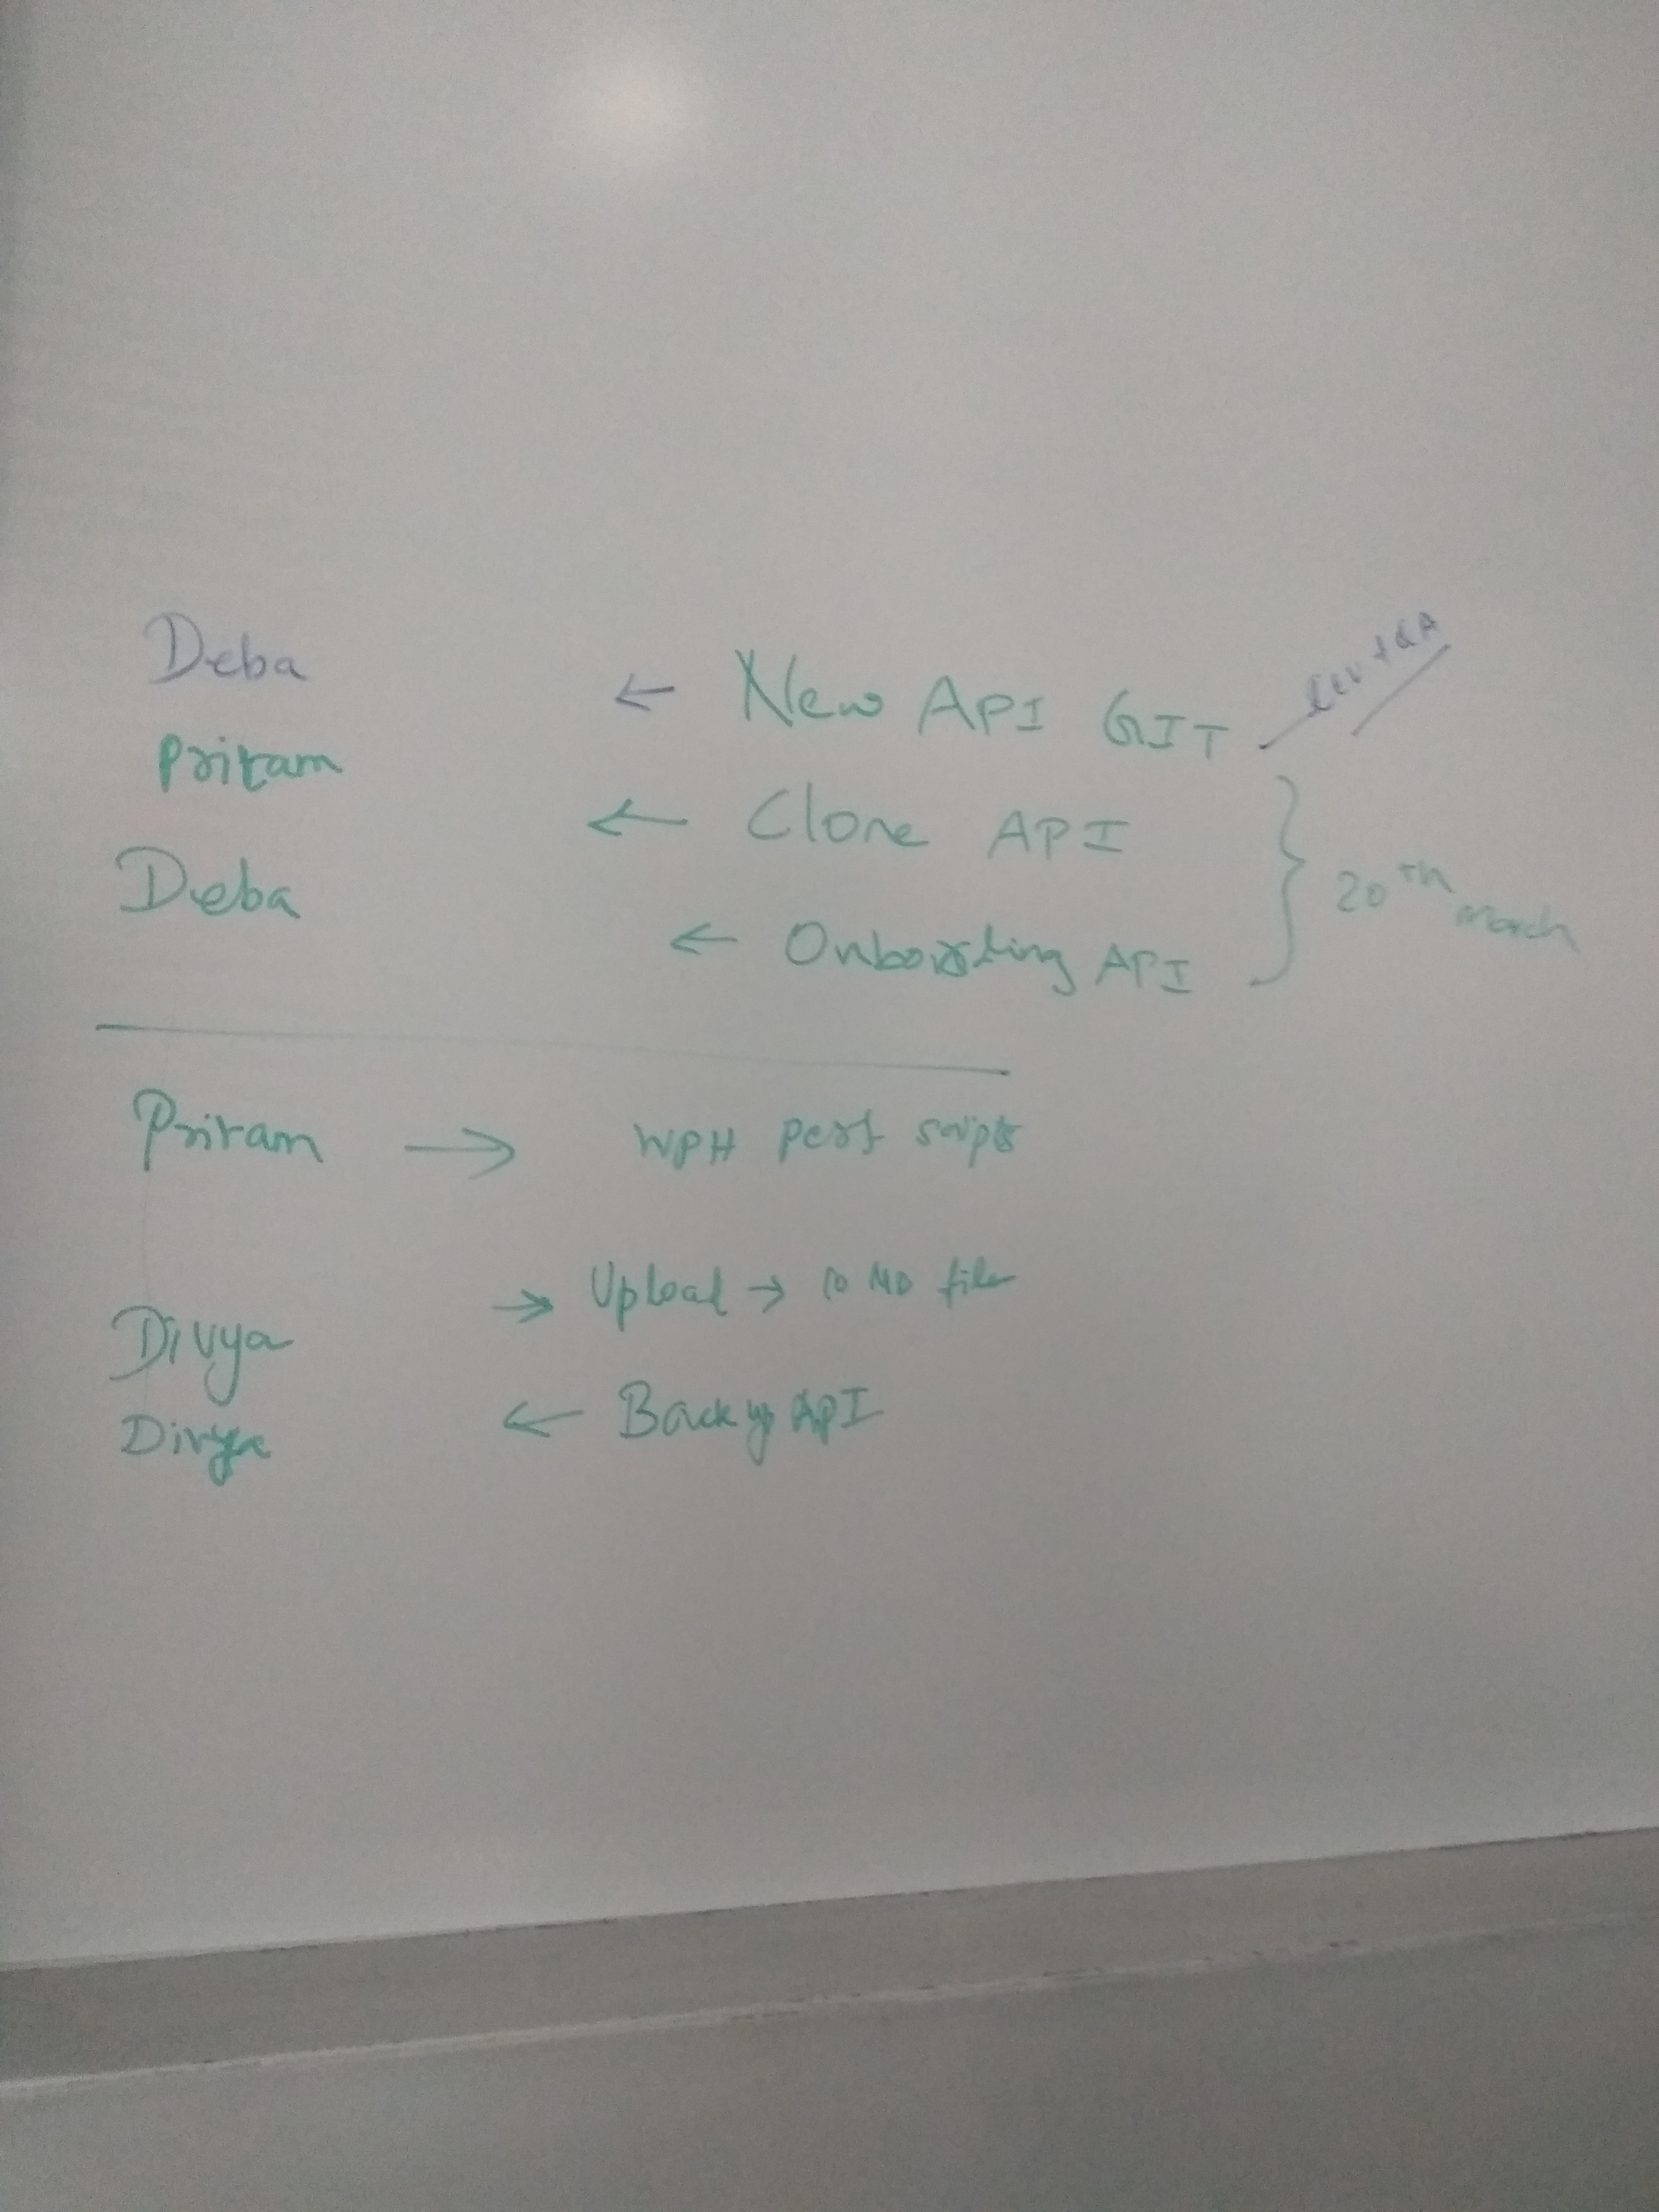 Deba ← New API GIT
Pritam ← Clone API
Deba ← Onboarding API
20th March
Pritam → WPH perf scripts
Divya → Upload → 10 MB file
Divya ← Backup API